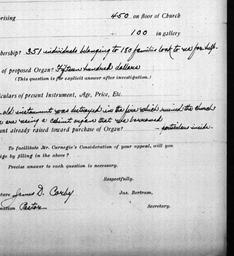 rising 450 on floor of Church
100 in gallery
bership? 351 individuals belonging to 150 families look to us for help.
of proposed Organ? Fifteen hundred dollars
(This question is for explicit answer after investigation.)
iculars of present Instrument, Age, Price, Etc.
old instrument was destroyed in the fire which ruined the church
are using a cabinet organ that we borrowed
unt already raised toward purchase of Organ? particulars inside
To facilitate Mr. Carnegie's Consideration of your appeal, will you
ige by filling in the above?
Precise answer to each question is necessary.
Respectfully,
ature James D. Corby Jas. Bertram,
sition Pastor Secretary.